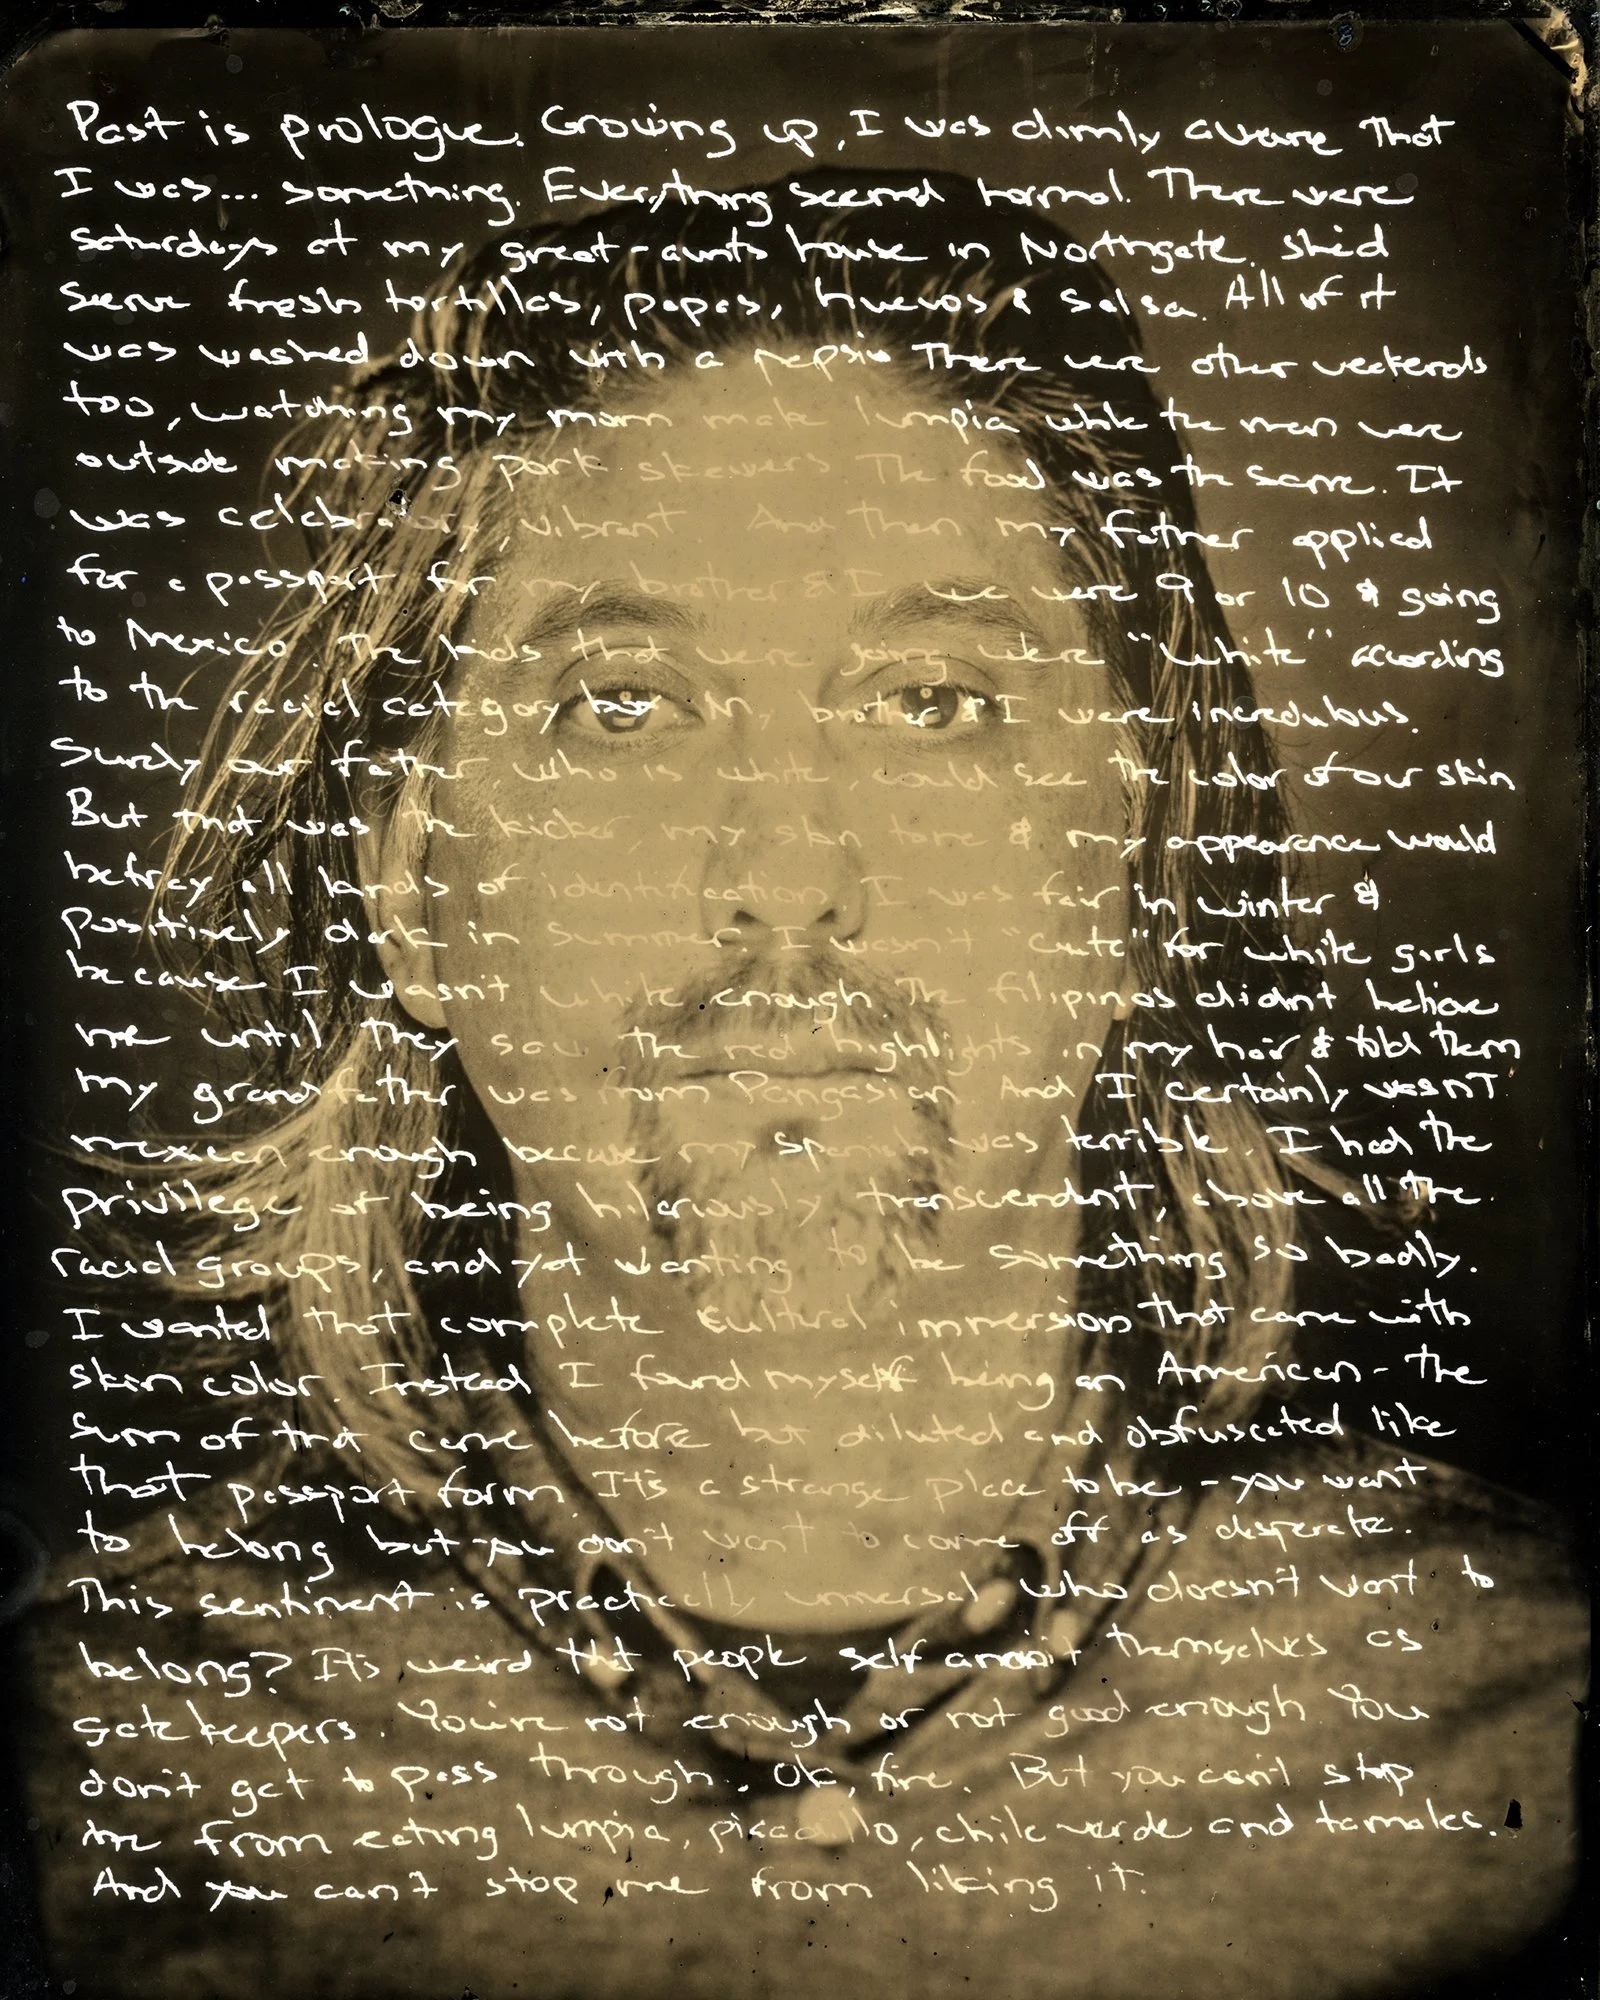 Past is prologue. Growing up, I was dimly aware that
I was... something. Everything seemed normal. There were
Saturdays at my great-aunts house in Northgate. She'd
serve fresh tortillas, papas, huevos & salsa. All of it
was washed down with a pepsi. There were other weekends
too, watching my mom make lumpia while the men were
outside making pork skewers. The food was the same. It
was celebratory, vibrant. And then my father applied
for a passport for my brother & I. We were 9 or 10 & going
to Mexico. The kids that were going were "white" according
to the racial category box. My brother & I were incredulous.
Surely our father, who is white, could see the color of our skin
But that was the kicker, my skin tone & my appearance would
betray all kinds of identification. I was fair in winter &
positively dark in summer. I wasn't "cute" for white girls
because I wasn't white enough. The filipinos didn't believe
me until they saw the red highlights in my hair & told them
my grandfather was from Pangasian. And I certainly wasn't
mexican enough because my Spanish was terrible. I had the
privilege of being hilariously transcendent, above all the
racial groups, and yet wanting to be something so badly.
I wanted that complete cultural immersion that came with
skin color. Instead I found myself being an American - the
sum of that came before but diluted and obfuscated like
that passport form. It's a strange place to be - you want
to belong but you don't want to come off as desperate.
This sentiment is practically universal. Who doesn't want to
belong? It's weird that people self themselves as
gatekeepers. You're not enough or not good enough. You
don't get to pass through. Ok, fine. But you can't stop
me from eating lumpia, picadillo, chile verde and tamales.
And you can't stop me from liking it.